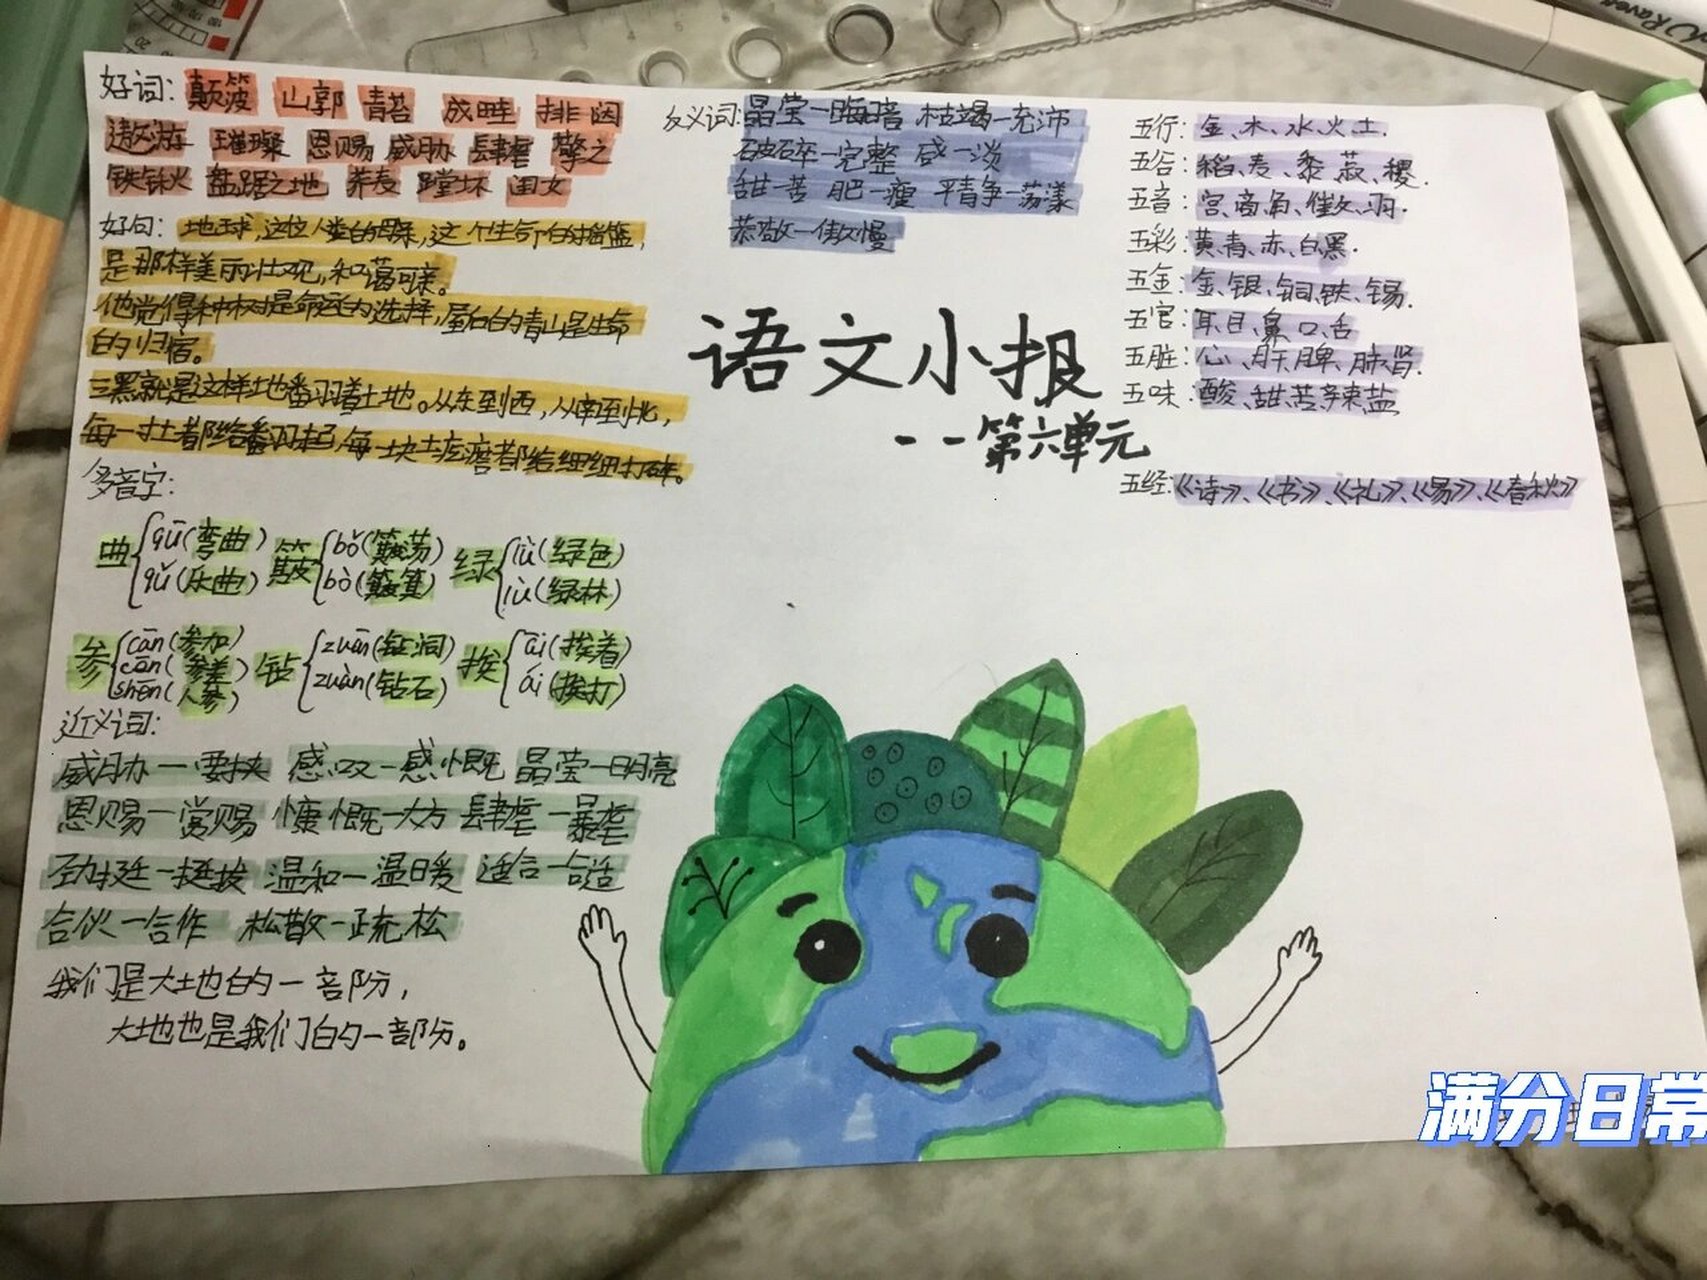 好词: 颠簸 山郭 青苔 成畦 排闼
遨游 璀璨 恩赐 威胁 肆虐 擎之
铁锹 盘踞之地 荞麦 蹚坏 闺女
好句: 地球,这位人类的母亲,这个生命的摇篮,
是那样美丽壮观,和蔼可亲。
他觉得种树是命运的选择,屋后的青山是生命
的归宿。
三黑就是这样地翻着土地。从东到西,从南到北,
每一寸土都给翻起,每一块土疙瘩都给细细打碎。
多音字:
曲 qū(弯曲) qǔ(乐曲) 簸 bǒ(簸荡) bò(簸箕) 绿 lǜ(绿色) lù(绿林)
参 cān(参加) cēn(参差) shēn(人参) 钻 zuān(钻洞) zuàn(钻石) 挨 āi(挨着) ái(挨打)
近义词:
威胁一要挟 感叹一感慨 晶莹一明亮
恩赐一赏赐 慷慨一大方 肆虐一暴虐
劲挺一挺拔 温和一温暖 适合一合适
合伙一合作 松散一疏松
我们是大地的一部分,
大地也是我们的一部分。
反义词: 晶莹一晦暗 枯竭一充沛
破碎一完整 咸一淡
甜一苦 肥一瘦 平静一荡漾
恭敬一傲慢
语文小报
--第六单元
五行: 金、木、水、火、土.
五谷: 稻、麦、黍、菽、稷.
五音: 宫、商、角、徵、羽.
五彩: 黄、青、赤、白、黑.
五金: 金、银、铜、铁、锡.
五官: 耳、目、鼻、口、舌
五脏: 心、肝、脾、肺、肾.
五味: 酸、甜、苦、辣、盐
五经:《诗》、《书》、《礼》、《易》、《春秋》
满分日常